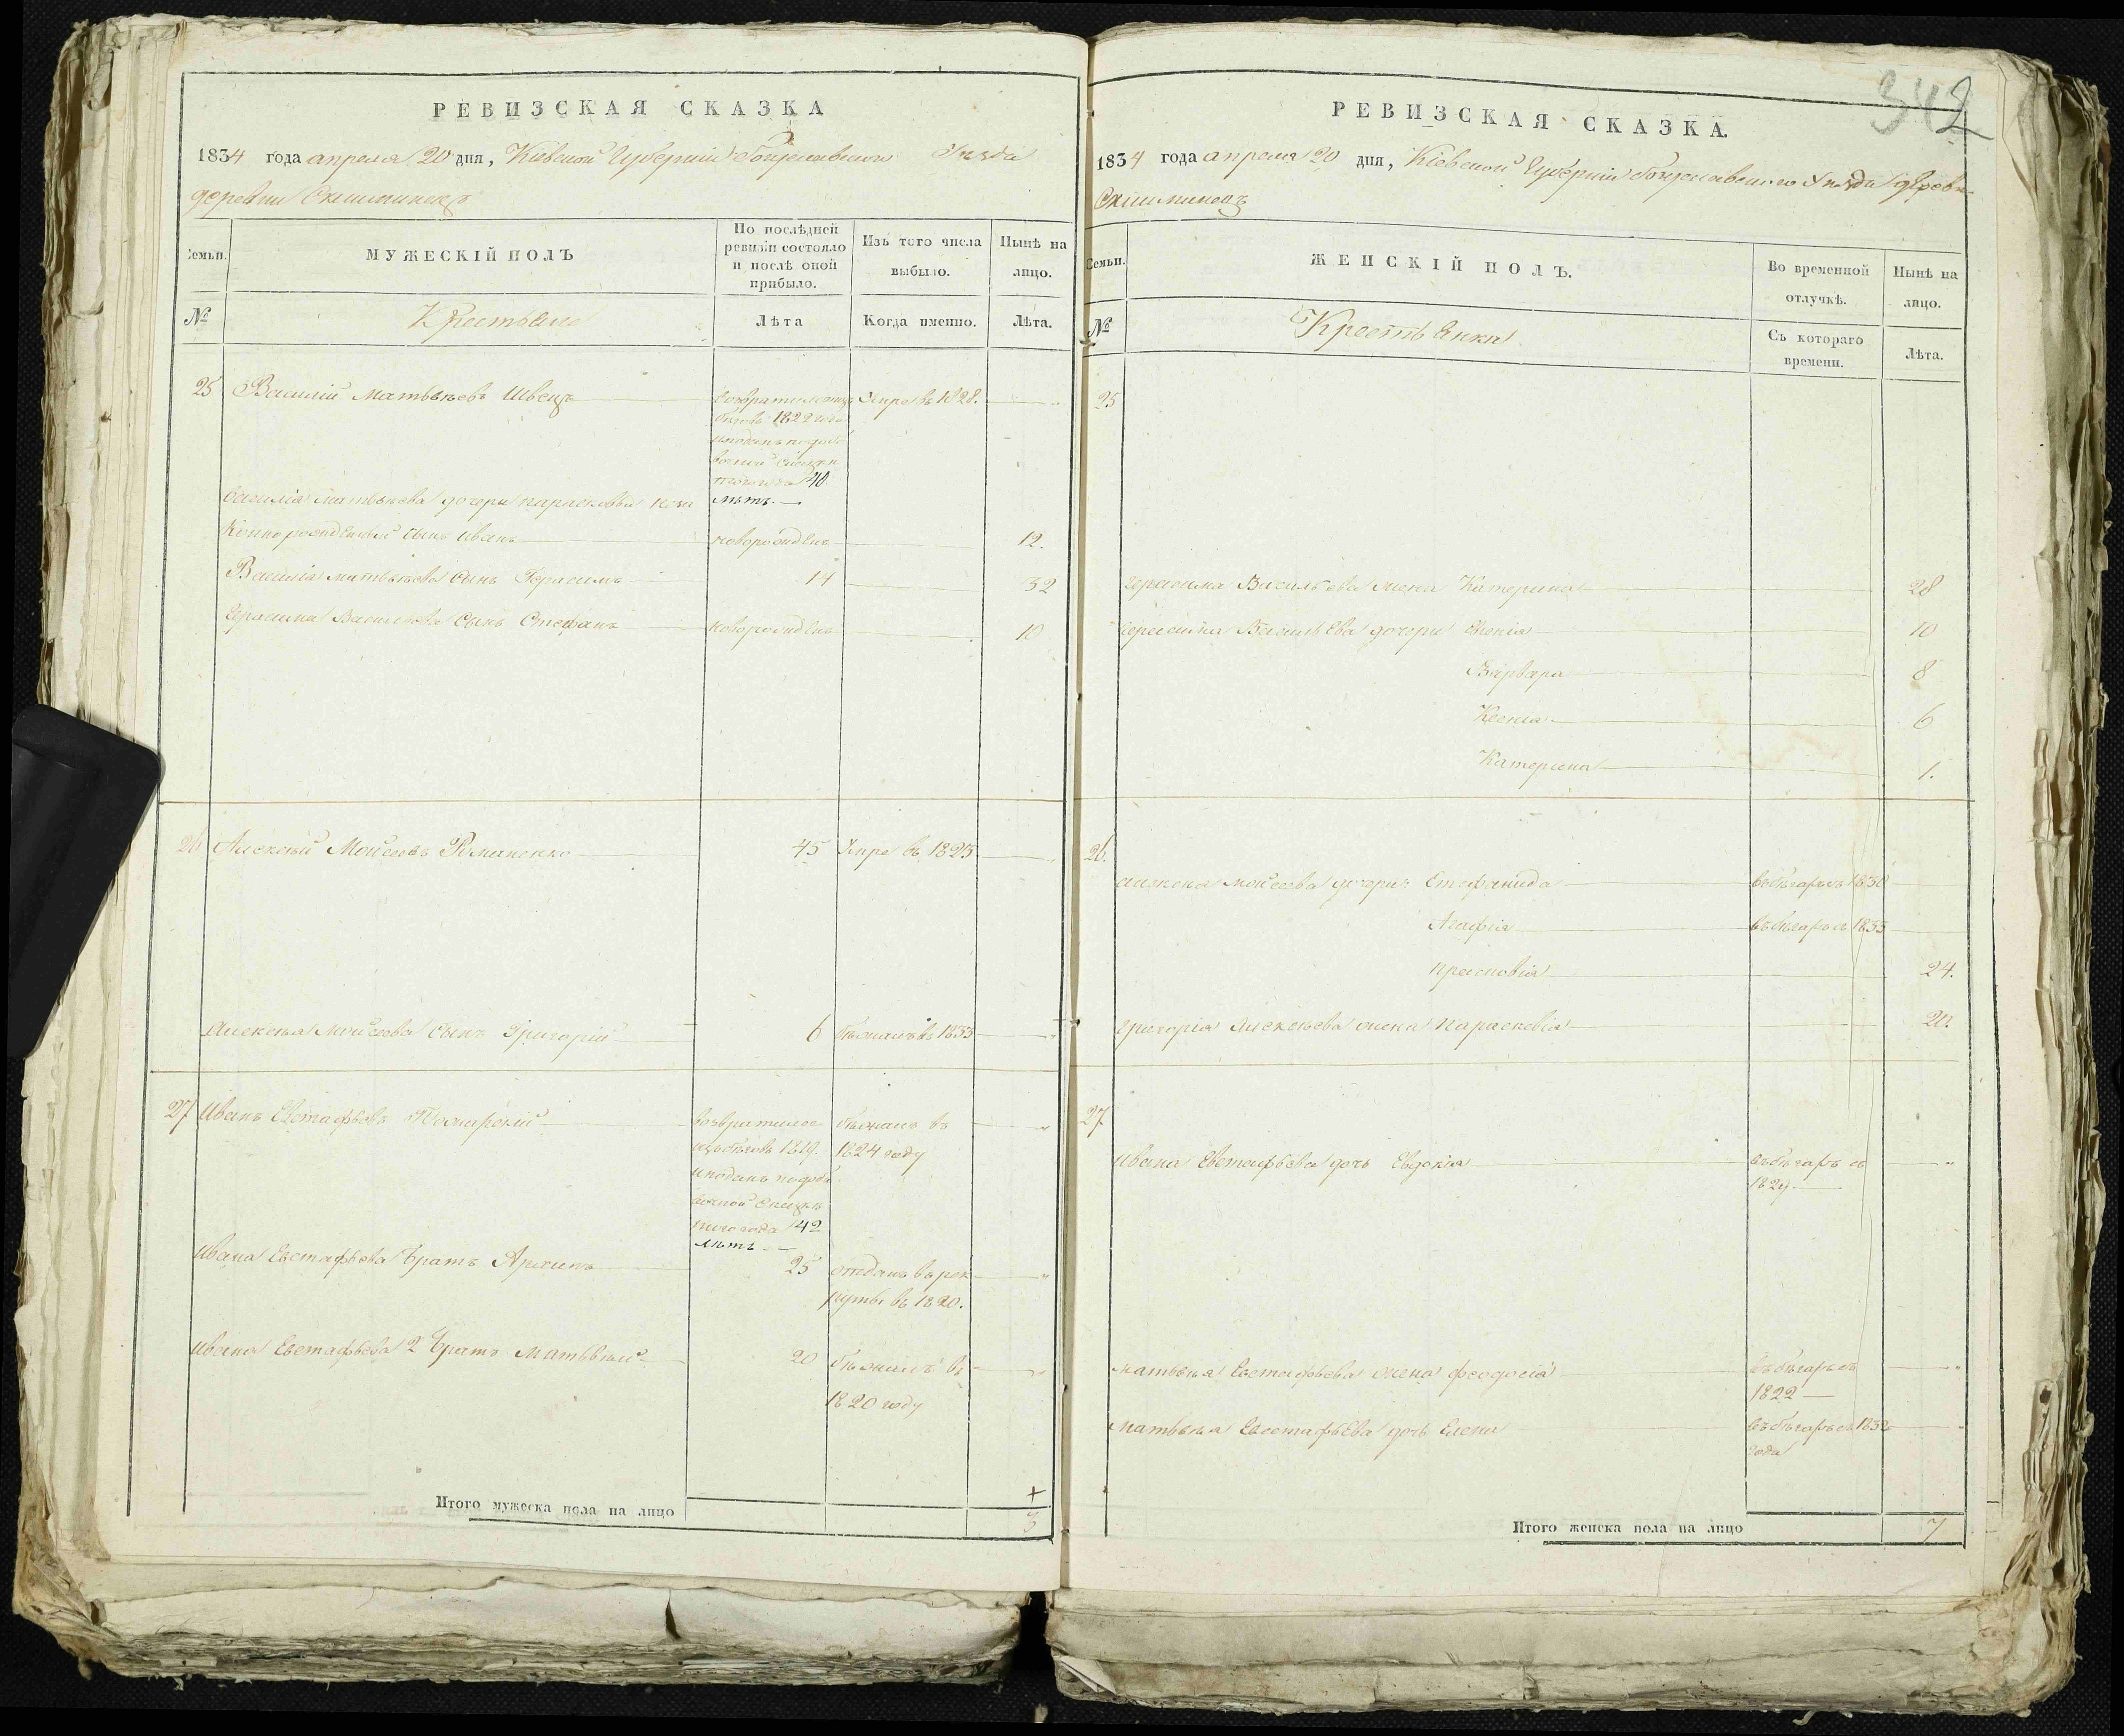 РЕВИЗСКАЯ СКАЗКА
1834 года апреля 20 дня, Кіевской Губерніи Богуславского Уезда
деревни
Семьи.
МУЖЕСКІЙ ПОЛЪ
По послѣдней ревизіи состояло и послѣ оной прибыло.
Изъ того числа выбыло.
Нынѣ на лицо.
№
Крестьяне
Лѣта
Когда именно.
Лѣта.
25 Василій Матвѣевъ Швецъ
возвратился изъ
бѣговъ 1822 года
и поданъ по доба
вочной сказки
того года 40
лѣтъ.
Умре въ 1828.
Василія Матвѣева дочери Парасковьи неза
конно рожденный сынъ Иванъ новорожденъ 12.
Василія Матвѣева сынъ Герасимъ 14 32
Герасима Васильева сынъ Стефанъ новорожденъ 10
26 Алексѣй Моисеевъ Романенко 45 Умре въ 1825
Алексѣя Моисеева сынъ Григорій 6 бѣжалъ въ 1833
27 Иванъ Евстафьевъ
возвратился
изъ бѣговъ 1819.
и поданъ по доба
вочной сказки
того года 42
лѣтъ
бѣжалъ въ
1824 году
Ивана Евстафьева братъ Архипъ 25 отданъ въ рек
руты въ 1820.
Ивана Евстафьева 2 братъ Матвѣй 20 бѣжалъ въ
1820 году
Итого мужеска пола на лицо 3
342
РЕВИЗСКАЯ СКАЗКА.
1834 года апреля 20 дня, Кіевской Губерніи Богуславского Уезда деревни
Семьи.
ЖЕНСКІЙ ПОЛЪ.
Во временной отлучкѣ.
Нынѣ на лицо.
№
Крестьянки
Съ котораго времени.
Лѣта.
25
Герасима Васильева жена Катерина 28
Герасима Васильева дочери Евгенія 10
Варвара 8
Ксенія 6
Катерина 1.
26.
Алексѣя Моисеева дочери: Стефанида въ бѣгахъ съ 1830
Агафія въ бѣгахъ съ 1833
Прасковія 24.
Григорія Алексѣева жена Параскевія 20.
27
Ивана Евстафьева дочь Евдокія въ бѣгахъ съ
1829
Матвѣя Евстафьева жена Феодосія въ бѣгахъ съ
1822
Матвѣя Евстафьева дочь Елена въ бѣгахъ съ 1832
года
Итого женска пола на лицо 7